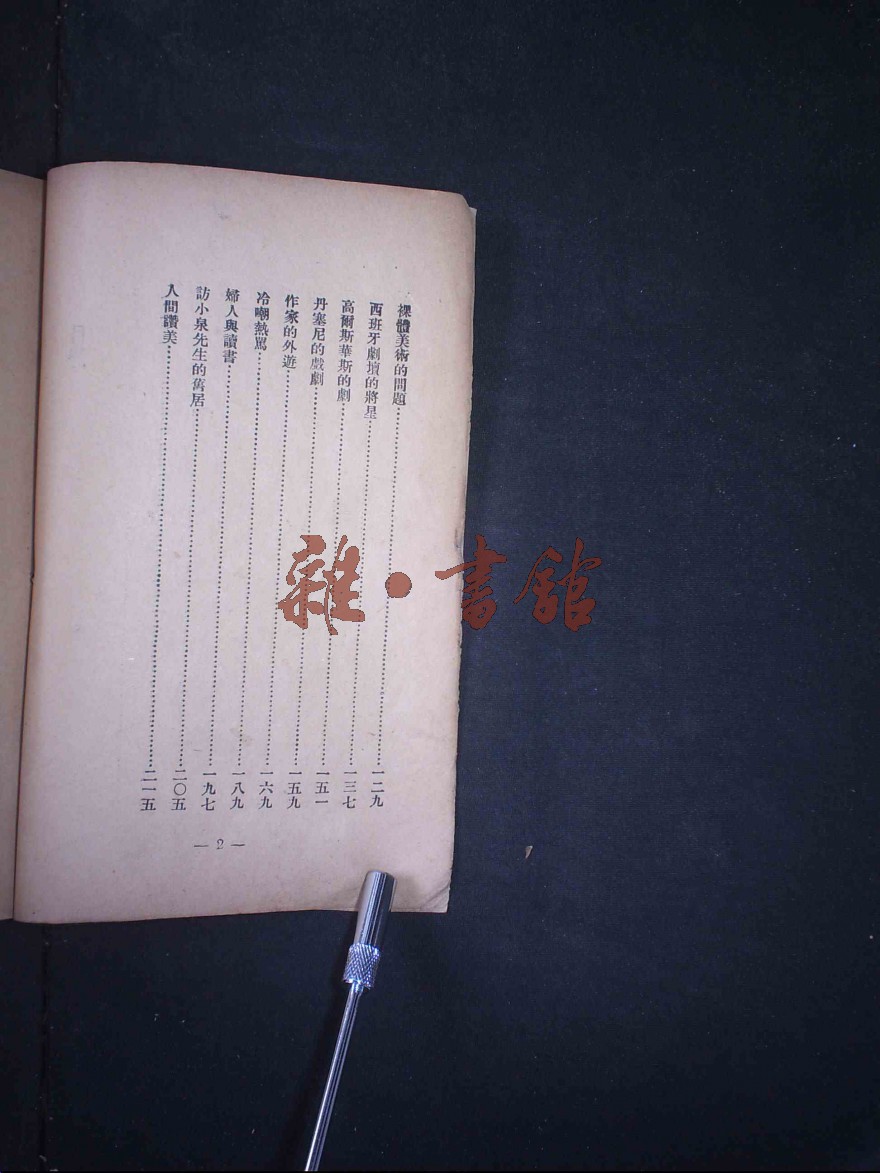 裸體美術的問題……一二九
西班牙劇壇的將星……一三七
高爾斯華斯的劇……一五一
丹塞尼的戲劇……一五九
作家的外遊……一六九
冷嘲熱罵……一八九
婦人與讀書……一九七
訪小泉先生的舊居……二〇五
人間讚美……二一五
— 2 —
雜·書館